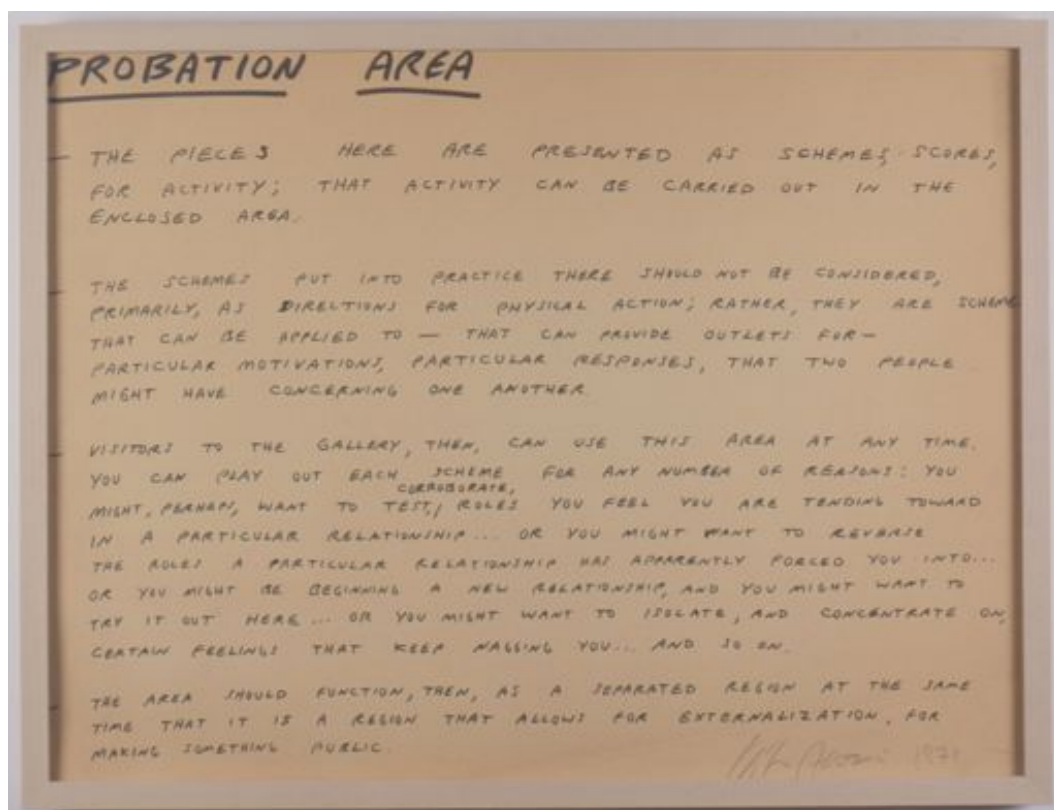 PROBATION AREA
— THE PIECES HERE ARE PRESENTED AS SCHEMES, SCORES,
FOR ACTIVITY; THAT ACTIVITY CAN BE CARRIED OUT IN THE
ENCLOSED AREA.
— THE SCHEMES PUT INTO PRACTICE THERE SHOULD NOT BE CONSIDERED,
PRIMARILY, AS DIRECTIONS FOR PHYSICAL ACTION; RATHER, THEY ARE SCHEME
THAT CAN BE APPLIED TO — THAT CAN PROVIDE OUTLETS FOR —
PARTICULAR MOTIVATIONS, PARTICULAR RESPONSES, THAT TWO PEOPLE
MIGHT HAVE CONCERNING ONE ANOTHER.
— VISITORS TO THE GALLERY, THEN, CAN USE THIS AREA AT ANY TIME.
YOU CAN PLAY OUT EACH SCHEME FOR ANY NUMBER OF REASONS: YOU
CORROBORATE,
MIGHT, PERHAPS, WANT TO TEST, / ROLES YOU FEEL YOU ARE TENDING TOWARD
IN A PARTICULAR RELATIONSHIP... OR YOU MIGHT WANT TO REVERSE
THE ROLES A PARTICULAR RELATIONSHIP HAS APPARENTLY FORCED YOU INTO...
OR YOU MIGHT BE BEGINNING A NEW RELATIONSHIP, AND YOU MIGHT WANT TO
TRY IT OUT HERE... OR YOU MIGHT WANT TO ISOLATE, AND CONCENTRATE ON,
CERTAIN FEELINGS THAT KEEP NAGGING YOU... AND SO ON.
— THE AREA SHOULD FUNCTION, THEN, AS A SEPARATED REGION AT THE SAME
TIME THAT IT IS A REGION THAT ALLOWS FOR EXTERNALIZATION, FOR
MAKING SOMETHING PUBLIC.
1971